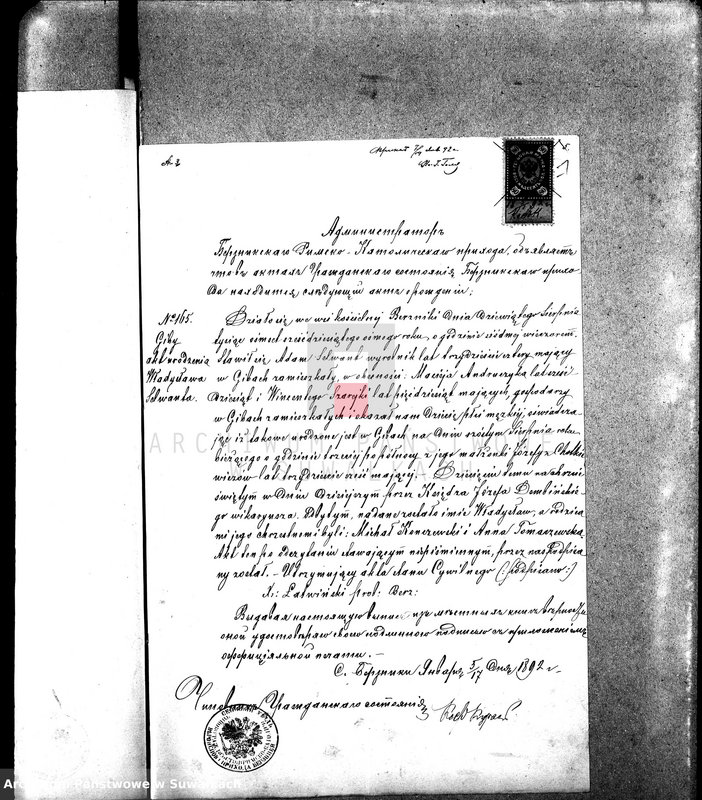 № 2
Администраторъ
Бержникскаго Римско-Католическаго прихода, объявляетъ
что въ актахъ Гражданскаго состоянія Бержникскаго прихо-
да находится слѣдующій актъ рожденія:
№165.
Giby
akt urodzenia
Władysława
Schwanta.
Działo się we wsi kościelnej Berżniki dnia dziewiątego Sierpnia
tysiąc ośmset sześćdziesiątego ósmego roku, o godzinie siódmej wieczorem.
Stawił się Adam Schwant wyrobnik lat trzydzieści cztery mający
w Gibach zamieszkały, w obecności Macieja Andruczyka lat
dziesiąt i Wincentego Szarejki lat pięćdziesiąt mających, gospodarzy
w Gibach zamieszkałych i okazał nam dziecię płci męzkiej, oświadcza-
jąc iż takowe urodzone jest w Gibach, w dniu szóstym Sierpnia roku
bieżącego o godzinie trzeciej po północy z jego małżonki Józefy z Chodkie-
wiczów lat trzydzieści sześć mającej. Dziecięciu temu na chrzcie
świętym w dniu dzisiejszym przez Księdza Józefa Dembińskie-
go wikaryusza odbytym, nadane zostało imie Władysław, a rodzica-
mi jego chrzestnemi byli: Michał Konczewski i Anna Tomaszewska.
Akt ten po odczytaniu stawającym niepiśmiennym, przez nas podpisa-
ny został. – Utrzymujący akta stanu Cywilnego (podpisano:)
X: Łatwiński prob: Berż:
Выдавая настоящую выпись изъ мѣстныхъ книгъ вѣрность
оной удостовѣряю своею подлинною подписью съ приложеніемъ
оффиціальной печати. –
С. Бержники Января 5/17 Дня 1892 г.
Чиновникъ Гражданскаго состоянія
ARCHIWUM PAŃSTWOWE
W SUWAŁKACH
Archiwum Państwowe w Suwałkach